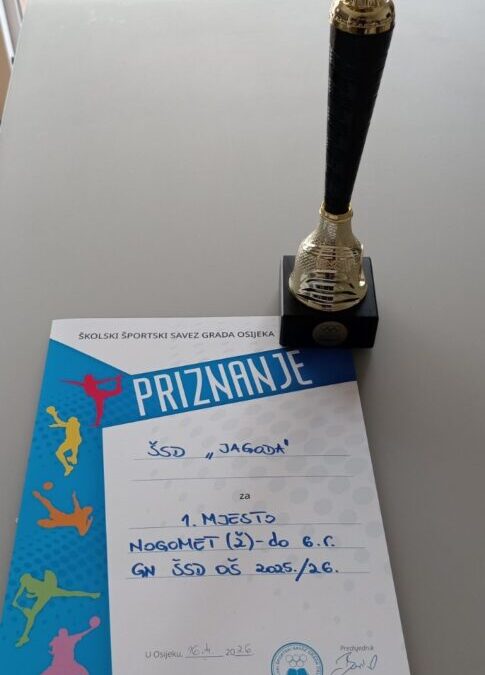 ŠKOLSKI ŠPORTSKI SAVEZ GRADA OSIJEKA
PRIZNANJE
ŠSD „JAGODA"
za
1. MJESTO
NOGOMET (Ž) - do 6. r.
GN ŠSD OŠ 2025./26.
U Osijeku, 16.4. 2026
Predsjednik